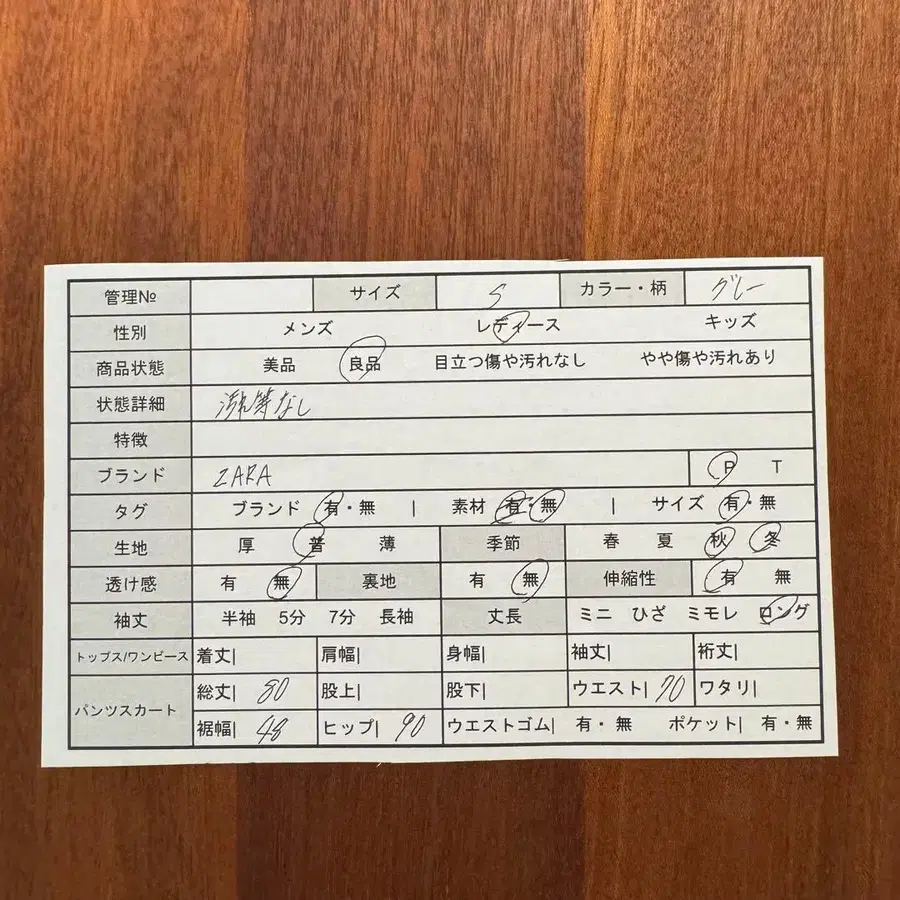 管理№ サイズ S カラー・柄 グレー
性別 メンズ レディース キッズ
商品状態 美品 良品 目立つ傷や汚れなし やや傷や汚れあり
状態詳細 汚れ等なし
特徴
ブランド ZARA P T
タグ ブランド 有・無 | 素材 有・無 | サイズ 有・無
生地 厚 普 薄 季節 春 夏 秋 冬
透け感 有 無 裏地 有 無 伸縮性 有 無
袖丈 半袖 5分 7分 長袖 丈長 ミニ ひざ ミモレ ロング
トップス/ワンピース 着丈| 肩幅| 身幅| 袖丈| 裄丈|
パンツスカート 総丈| 80 股上| 股下| ウエスト| 70 ワタリ|
裾幅| 48 ヒップ| 90 ウエストゴム| 有・無 ポケット| 有・無